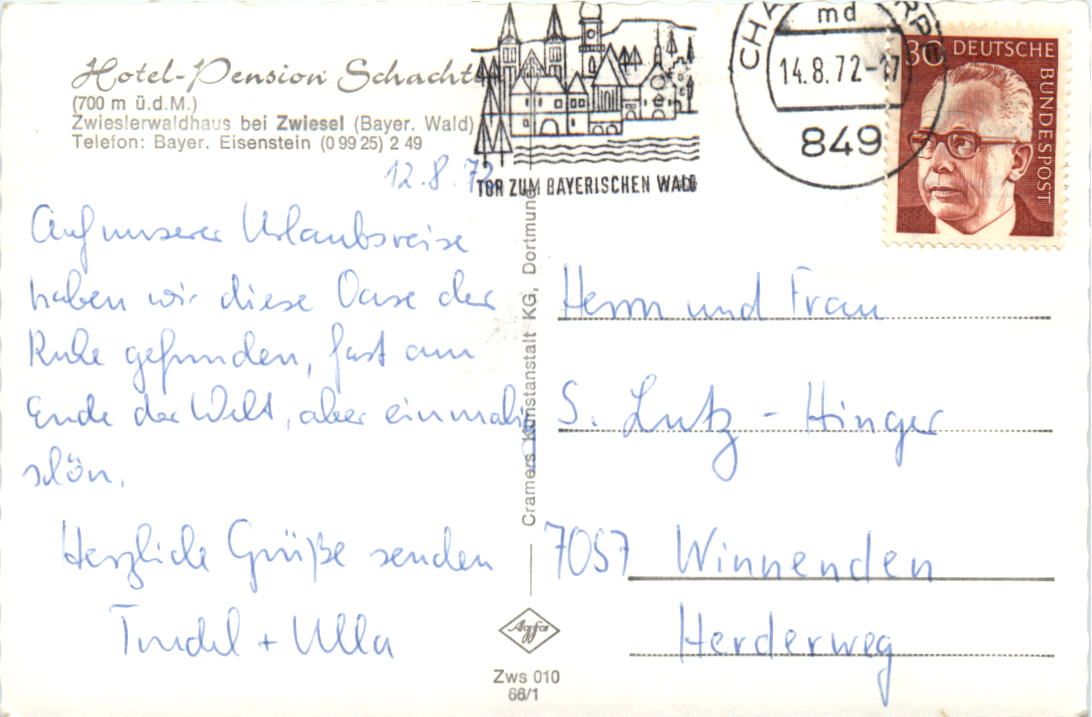 Hotel-Pension Schacht
(700 m ü.d.M.)
Zwieslerwaldhaus bei Zwiesel (Bayer. Wald)
Telefon: Bayer. Eisenstein (0 99 25) 2 49
TOR ZUM BAYERISCHEN WALD
CHA
md
14.8.72-17
849
30 DEUTSCHE
BUNDESPOST
12.8.72
Auf unserer Urlaubsreise
haben wir diese Oase der
Ruhe gefunden, fast am
Ende der Welt, aber einmalig
schön.
Herzliche Grüße senden
Trudel + Ulla
Cramers Kunstanstalt KG, Dortmund
Agfa
Zws 010
66/1
Herrn und Frau
S. Lutz - Hinger
7057 Winnenden
Herderweg